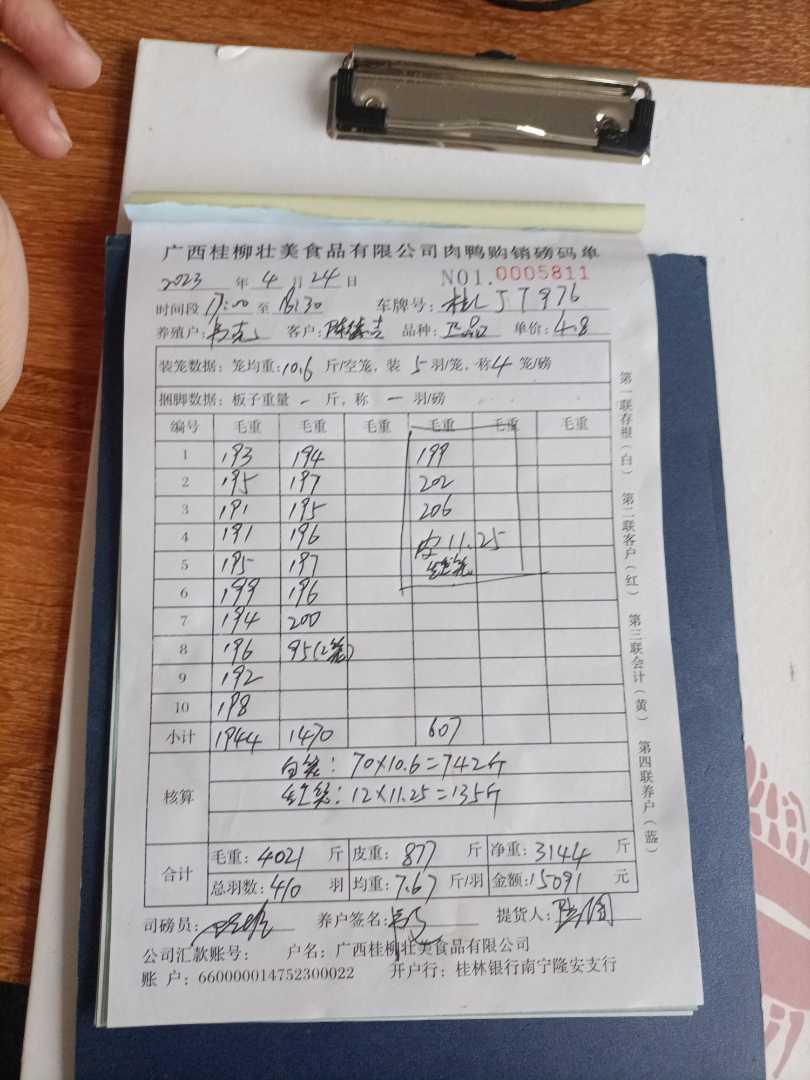 广西桂柳壮美食品有限公司肉鸭购销磅码单
2023 年 4 月 24 日 NO1. 0005811
时间段 17:00 至 18:30 车牌号: 桂L JT976
养殖户: 客户: 品种: 正品 单价: 4.8
装笼数据: 笼均重: 10.6 斤/空笼, 装 5 羽/笼, 称 4 笼/磅
捆脚数据: 板子重量 - 斤, 称 - 羽/磅
编号 毛重 毛重 毛重 毛重 毛重 毛重
1 193 194 199
2 195 197 202
3 191 195 206
4 191 196 皮11.25
5 195 197 红笼
6 199 196
7 194 200
8 196 95(2笼)
9 192
10 198
小计 1944 1470 607
白笼: 70×10.6=742斤
核算 红笼: 12×11.25=135斤
合计 毛重: 4021 斤 皮重: 877 斤 净重: 3144 斤
总羽数: 410 羽 均重: 7.67 斤/羽 金额: 15091 元
司磅员: 养户签名: 提货人:
公司汇款账号: 户名: 广西桂柳壮美食品有限公司
账 户: 660000014752300022 开户行: 桂林银行南宁隆安支行
第一联存根(白) 第二联客户(红) 第三联会计(黄) 第四联养户(蓝)